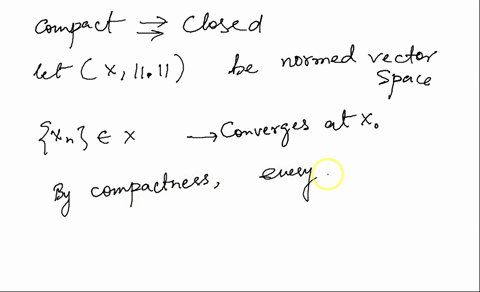 compact ⇒ Closed
let (X, ||.||) be normed vector
space
{xn} ∈ X → Converges at x₀
By compactness, every